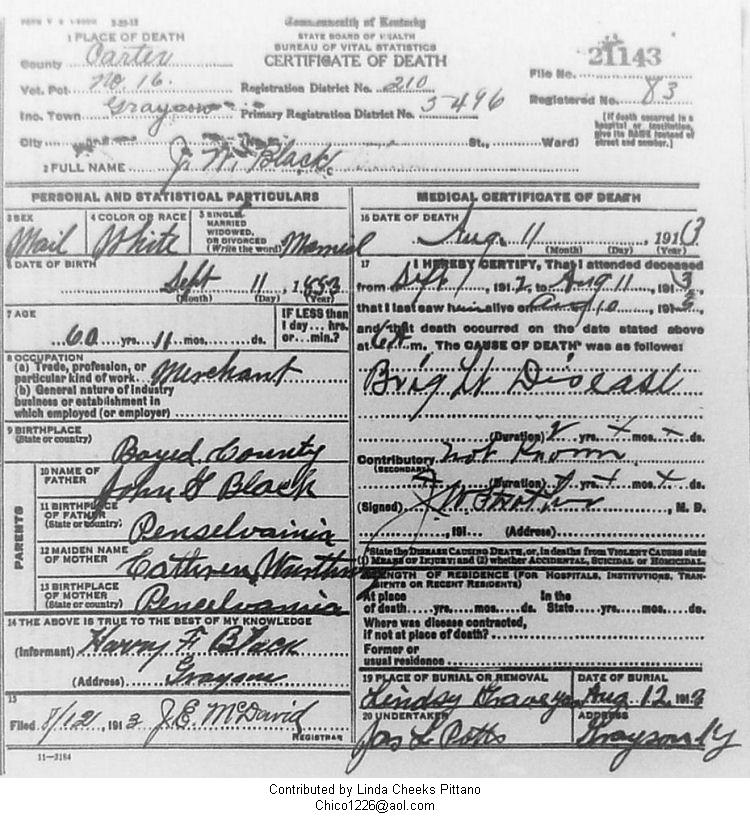 1 PLACE OF DEATH
Commonwealth of Kentucky
STATE BOARD OF HEALTH
BUREAU OF VITAL STATISTICS
CERTIFICATE OF DEATH
County Carter
Vot. Pct. No 16.
Inc. Town Grayson
City St., Ward)
Registration District No. 210
Primary Registration District No. 5496
File No. 21143
Registered No. 83
(If death occurred in a hospital or institution, give its NAME instead of street and number.)
2 FULL NAME J. W. Black
PERSONAL AND STATISTICAL PARTICULARS
3 SEX Mail
4 COLOR OR RACE White
5 SINGLE, MARRIED WIDOWED, OR DIVORCED (Write the word) Married
6 DATE OF BIRTH
Sept 11, 1853
(Month) (Day) (Year)
7 AGE
60 yrs. 11 mos. ds.
IF LESS than 1 day... hrs. or... min.?
8 OCCUPATION
(a) Trade, profession, or particular kind of work Merchant
(b) General nature of industry business or establishment in which employed (or employer)
9 BIRTHPLACE
(State or country)
Boyed County
PARENTS
10 NAME OF FATHER John G Black
11 BIRTHPLACE OF FATHER (State or country) Penselvainia
12 MAIDEN NAME OF MOTHER Cathren
13 BIRTHPLACE OF MOTHER (State or country) Penselvania
14 THE ABOVE IS TRUE TO THE BEST OF MY KNOWLEDGE
(Informant) Harry F. Black
(Address) Grayson
15
Filed 8/12, 1913 J.E. McDavid
REGISTRAR
11-3184
MEDICAL CERTIFICATE OF DEATH
16 DATE OF DEATH
Aug. 11, 1913
(Month) (Day) (Year)
17 I HEREBY CERTIFY, That I attended deceased
from Sept 1, 1912, to Aug 11, 1913,
that I last saw him alive on Aug 10, 1913,
and that death occurred on the date stated above
at 6 A m. The CAUSE OF DEATH* was as follows:
Bright Disease
(Duration) 2 yrs. x mos. x ds.
Contributory Not Known
(SECONDARY)
(Duration) yrs. x mos. x ds.
(Signed) M. D.
, 191 (Address)
*State the DISEASE CAUSING DEATH, or, in deaths from VIOLENT CAUSES state (1) MEANS OF INJURY; and (2) whether ACCIDENTAL, SUICIDAL or HOMICIDAL.
LENGTH OF RESIDENCE (FOR HOSPITALS, INSTITUTIONS, TRANSIENTS OR RECENT RESIDENTS)
At place of death yrs. mos. ds. In the State yrs. mos. ds.
Where was disease contracted, if not at place of death?
Former or usual residence
19 PLACE OF BURIAL OR REMOVAL
Lindsy Graveyar
DATE OF BURIAL
Aug 12, 1913
20 UNDERTAKER
Jas L Potts
ADDRESS
Grayson Ky
Contributed by Linda Cheeks Pittano
Chico1226@aol.com